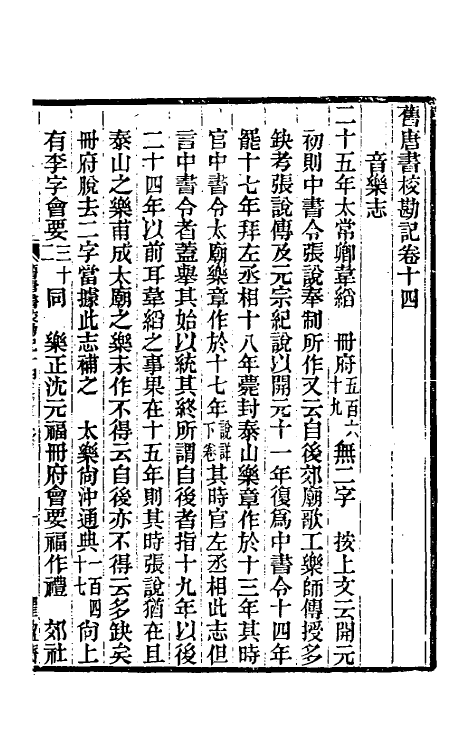 舊唐書校勘記卷十四
音樂志
二十五年太常卿韋縚　冊府五百六十九無二字　按上文云開元
初則中書令張說奉制所作又云自後郊廟歌工樂師傳授多
缺考張說傳及元宗紀說以開元十一年復爲中書令十四年
罷十七年拜左丞相十八年薨封泰山樂章作於十三年其時
官中書令太廟樂章作於十七年說詳下卷其時官左丞相此志但
言中書令者蓋舉其始以統其終所謂自後者指十九年以後
二十四年以前耳韋縚之事果在十五年則其時張說猶在且
泰山之樂甫成太廟之樂未作不得云自後亦不得云多缺矣
冊府脫去二字當據此志補之　太樂尙沖通典一百四十七尙上
有李字會要三十二同　樂正沈元福冊府會要福作禮　郊社